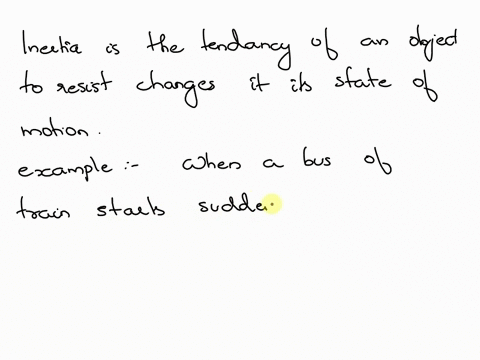 Inertia is the tendancy of an object
to resist changes it its state of
motion.
example :- when a bus of
train starts sudde